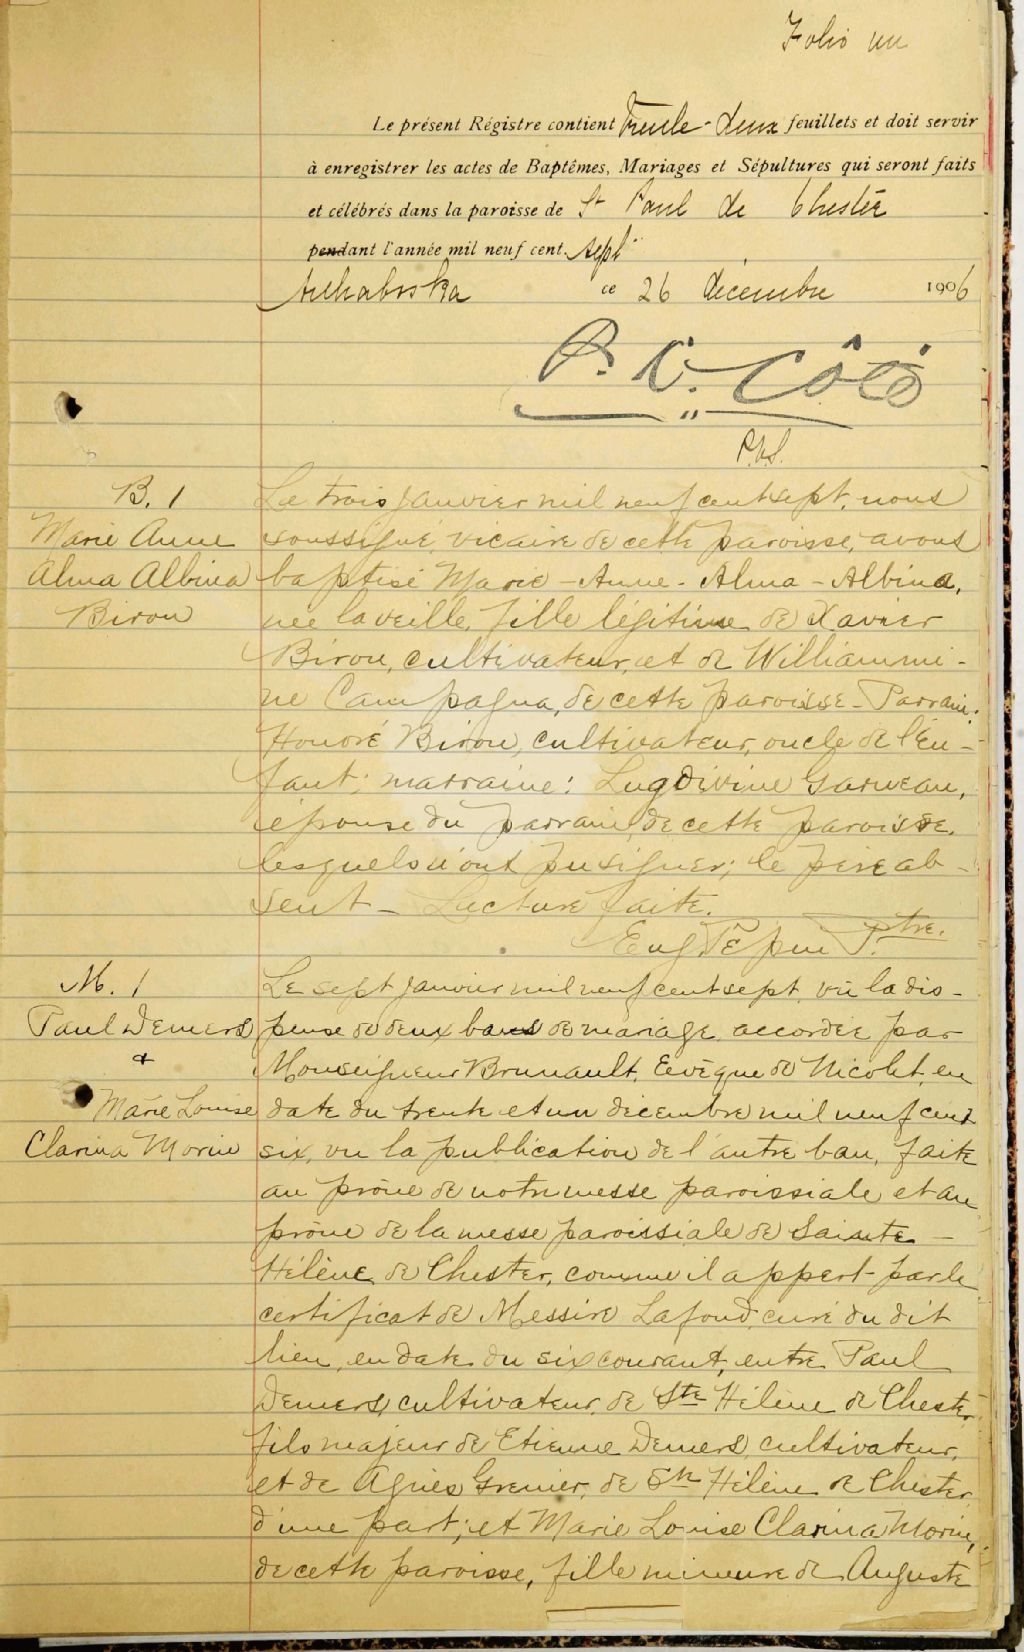 Folio un
Le présent Régistre contient Trente-deux feuillets et doit servir
à enregistrer les actes de Baptêmes, Mariages et Sépultures qui seront faits
et célébrés dans la paroisse de St Paul de Chester
pendant l'année mil neuf cent. sept
Arthabaska ce 26 décembre 1906
P. C. Côté
P.C.S.
B. 1
Marie Anne
Alma Albina
Biron
Le trois janvier mil neuf cent sept, nous
soussigné, vicaire de cette paroisse, avons
baptisé Marie-Anne-Alma-Albina,
née la veille, fille légitime de Xavier
Biron, cultivateur, et de Williammi-
ne Campagna, de cette paroisse - Parrain:
Honoré Biron, cultivateur, oncle de l'en-
fant; marraine: Lugdivine Garneau,
épouse du parrain, de cette paroisse,
lesquels n'ont pu signer; le père ab-
sent - Lecture faite.
Eug. Pépin Ptre.
M. 1
Paul Demers
+
Marie Louise
Clarina Morin
Le sept janvier mil neuf cent sept, vu la dis-
pense de deux bans de mariage accordée par
Monseigneur Brunault, Evêque de Nicolet, en
date du trente et un décembre mil neuf cent
six, vu la publication de l'autre ban, faite
au prône de notre messe paroissiale et au
prône de la messe paroissiale de Sainte-
Hélène de Chester, comme il appert par le
certificat de Messire Lafond, curé du dit
lieu, en date du six courant, entre Paul
Demers, cultivateur, de Ste Hélène de Chester,
fils majeur de Etienne Demers, cultivateur,
et de Agnès Grenier, de Ste Hélène de Chester,
d'une part; et Marie Louise Clarina Morin,
de cette paroisse, fille mineure de Auguste